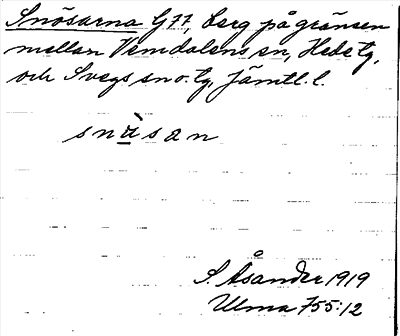 Snösarna G 77, berg på gränsen
mellan Vemdalens sn, Hede tg,
och Svegs sn o. tg, Jämtl. l.
snùsan
S. Åsander 1919
Ulma 755:12